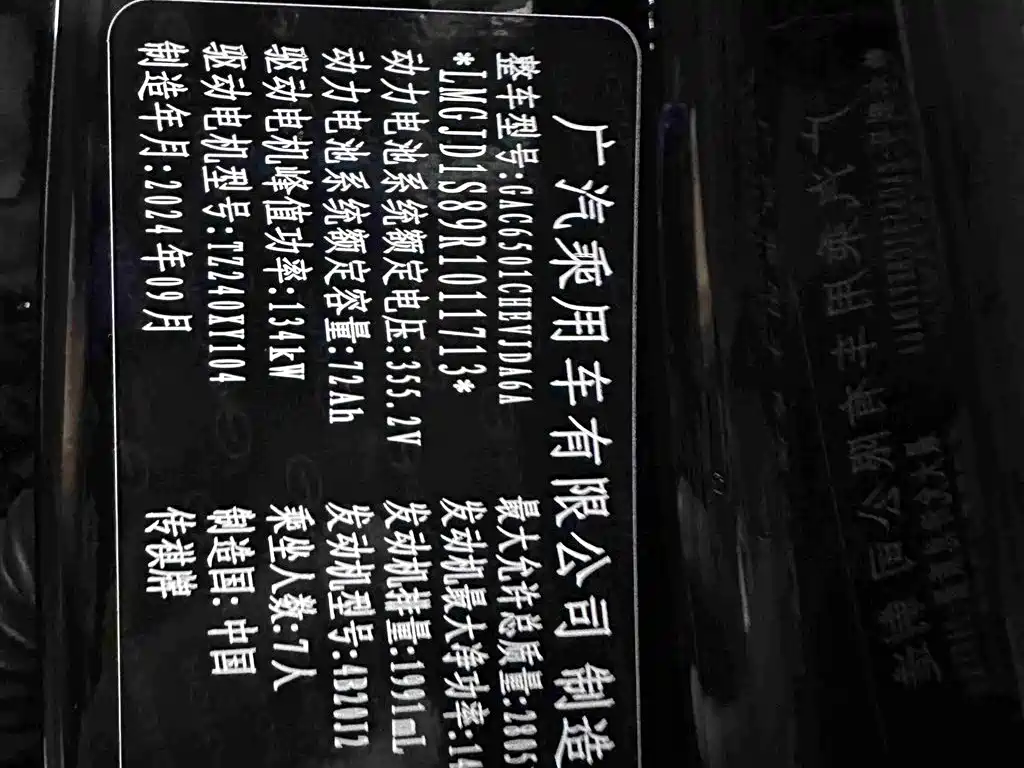 广汽乘用车有限公司 制造
整车型号:GAC6501CHEVJDA6A 最大允许总质量:2805
*LMGJD1S89R1011713* 发动机最大净功率:14
动力电池系统额定电压:355.2V 发动机排量:1991mL
动力电池系统额定容量:72Ah 发动机型号:4B20J2
驱动电机峰值功率:134kW 乘坐人数:7人
驱动电机型号:TZ240XY104 制造国:中国
制造年月:2024年09月 传祺牌